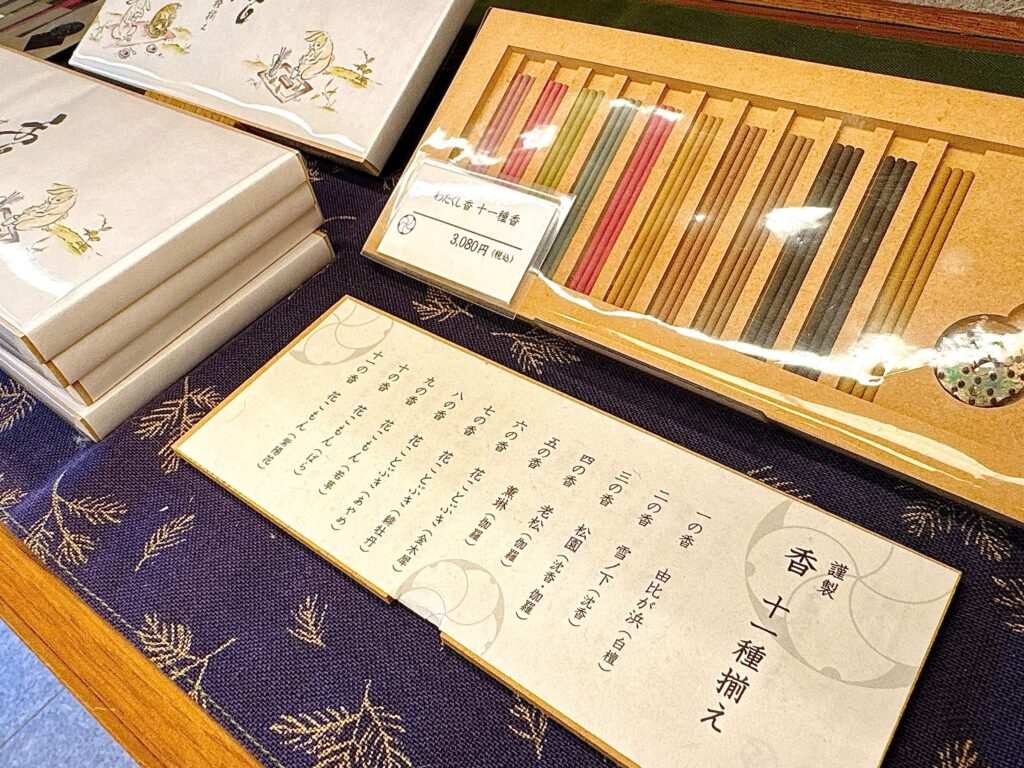 わたくし香 十一種香
3,080円(税込)
謹製
香 十一種揃え
一の香 由比が浜(白檀)
二の香 雪ノ下(沈香)
三の香 松園(沈香・伽羅)
四の香 老松(伽羅)
五の香 薫琳(伽羅)
六の香 花ことぶき(金木犀)
七の香 花ことぶき(緋牡丹)
八の香 花ことぶき(あやめ)
九の香 花こもん(若草)
十の香 花こもん(ばら)
十一の香 花こもん(紫陽花)